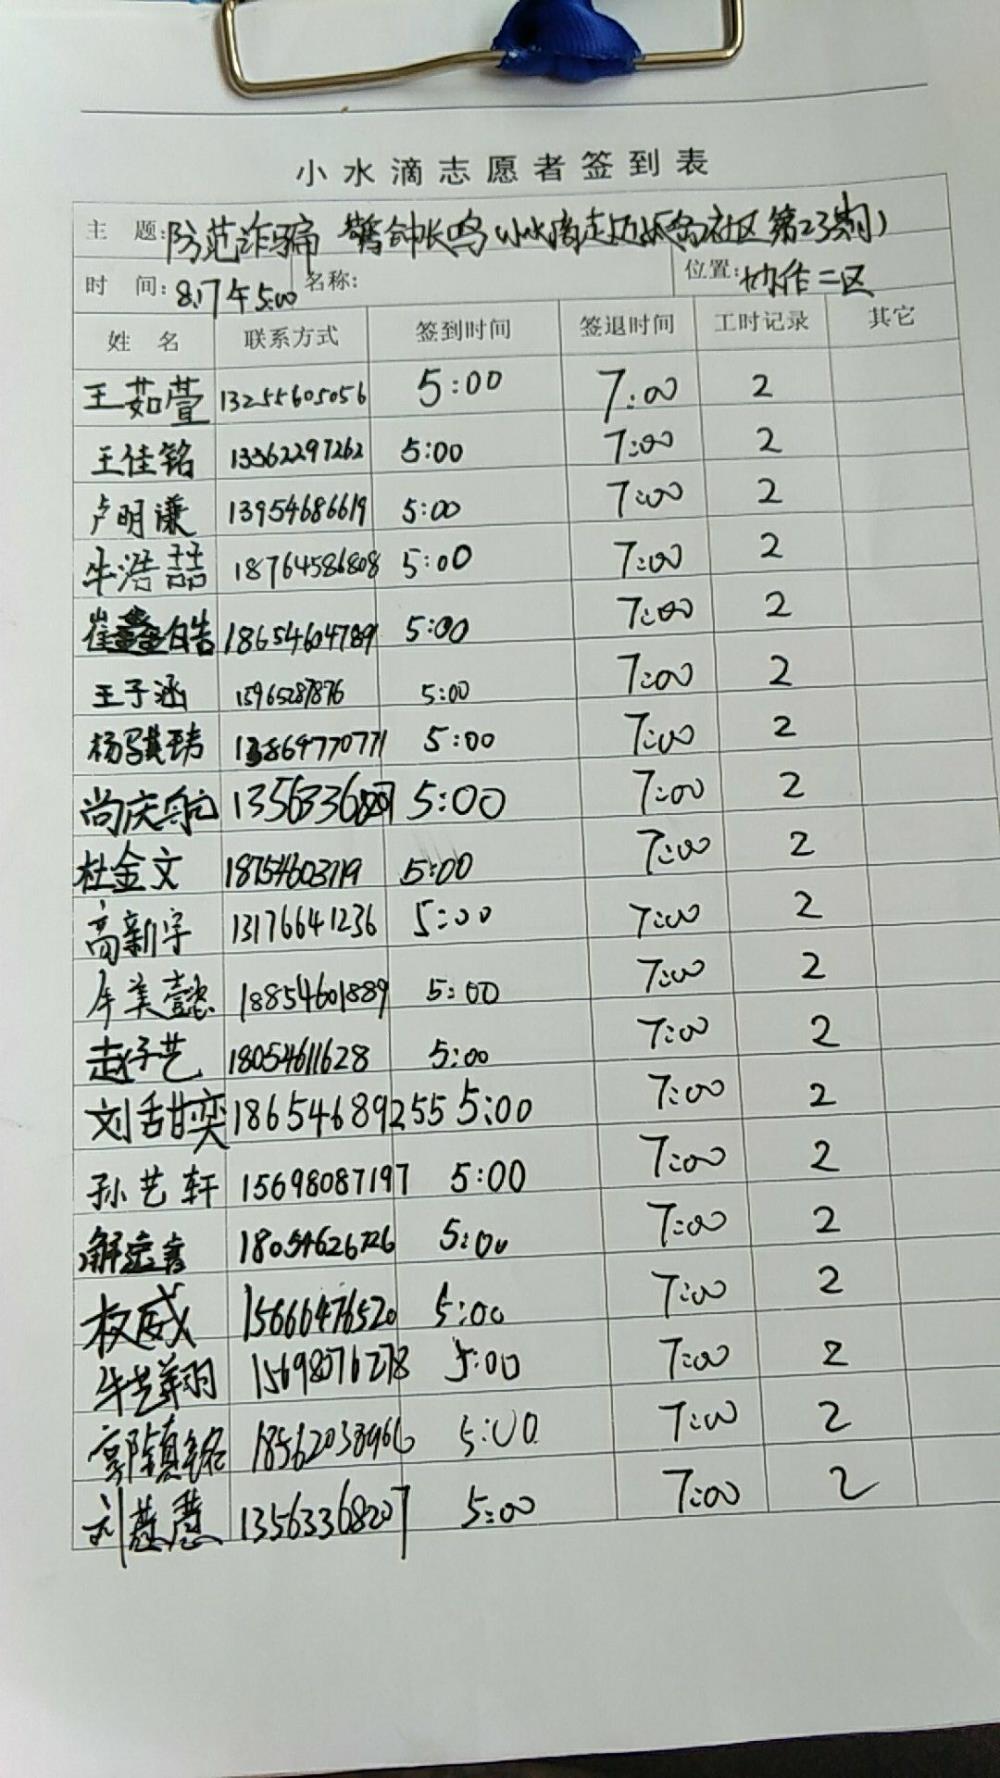 小水滴志愿者签到表
主 题: 防范诈骗 警钟长鸣(小水滴走进 社区第23期)
时 间: 8.17午5:00 名称: 位置: 协作二区
姓 名 联系方式 签到时间 签退时间 工时记录 其它
王茹萱 13255605056 5:00 7:00 2
王佳铭 13362297262 5:00 7:00 2
卢明谦 13954686619 5:00 7:00 2
牛浩喆 18764586808 5:00 7:00 2
崔鑫皓 18654604789 5:00 7:00 2
王子涵 15965287876 5:00 7:00 2
杨骐玮 13864770771 5:00 7:00 2
尚庆航 13563368207 5:00 7:00 2
杜金文 18754603719 5:00 7:00 2
高新宇 13176641236 5:00 7:00 2
牟美懿 18854601889 5:00 7:00 2
赵仔艺 18054611628 5:00 7:00 2
刘甜奕 18654689255 5:00 7:00 2
孙艺轩 15698087197 5:00 7:00 2
解 18054626726 5:00 7:00 2
权威 15666476520 5:00 7:00 2
牛艺翔 15698076278 5:00 7:00 2
郭镇铭 18562038966 5:00 7:00 2
刘慧慧 13563368207 5:00 7:00 2